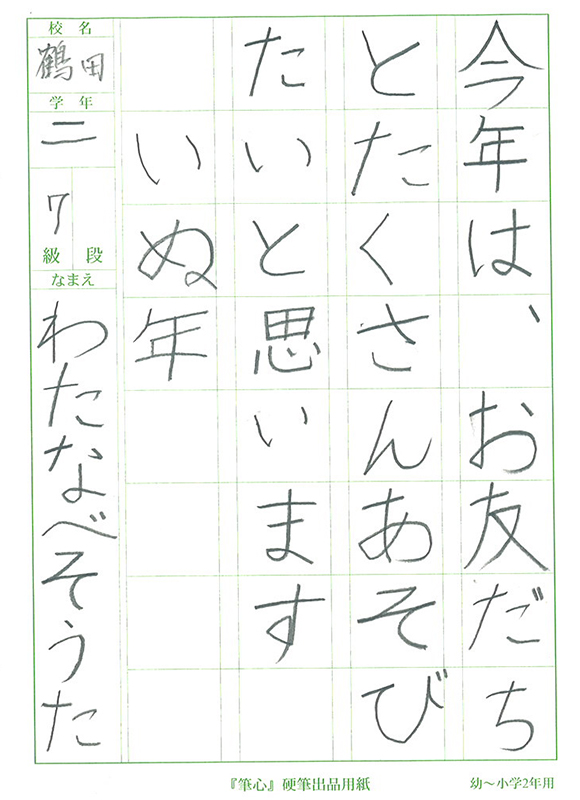 今年は、お友だち
とたくさんあそび
たいと思います
いぬ年
校名
鶴田
学年
二
7
級 段
なまえ
わたなべそうた
『筆心』硬筆出品用紙
幼〜小学2年用